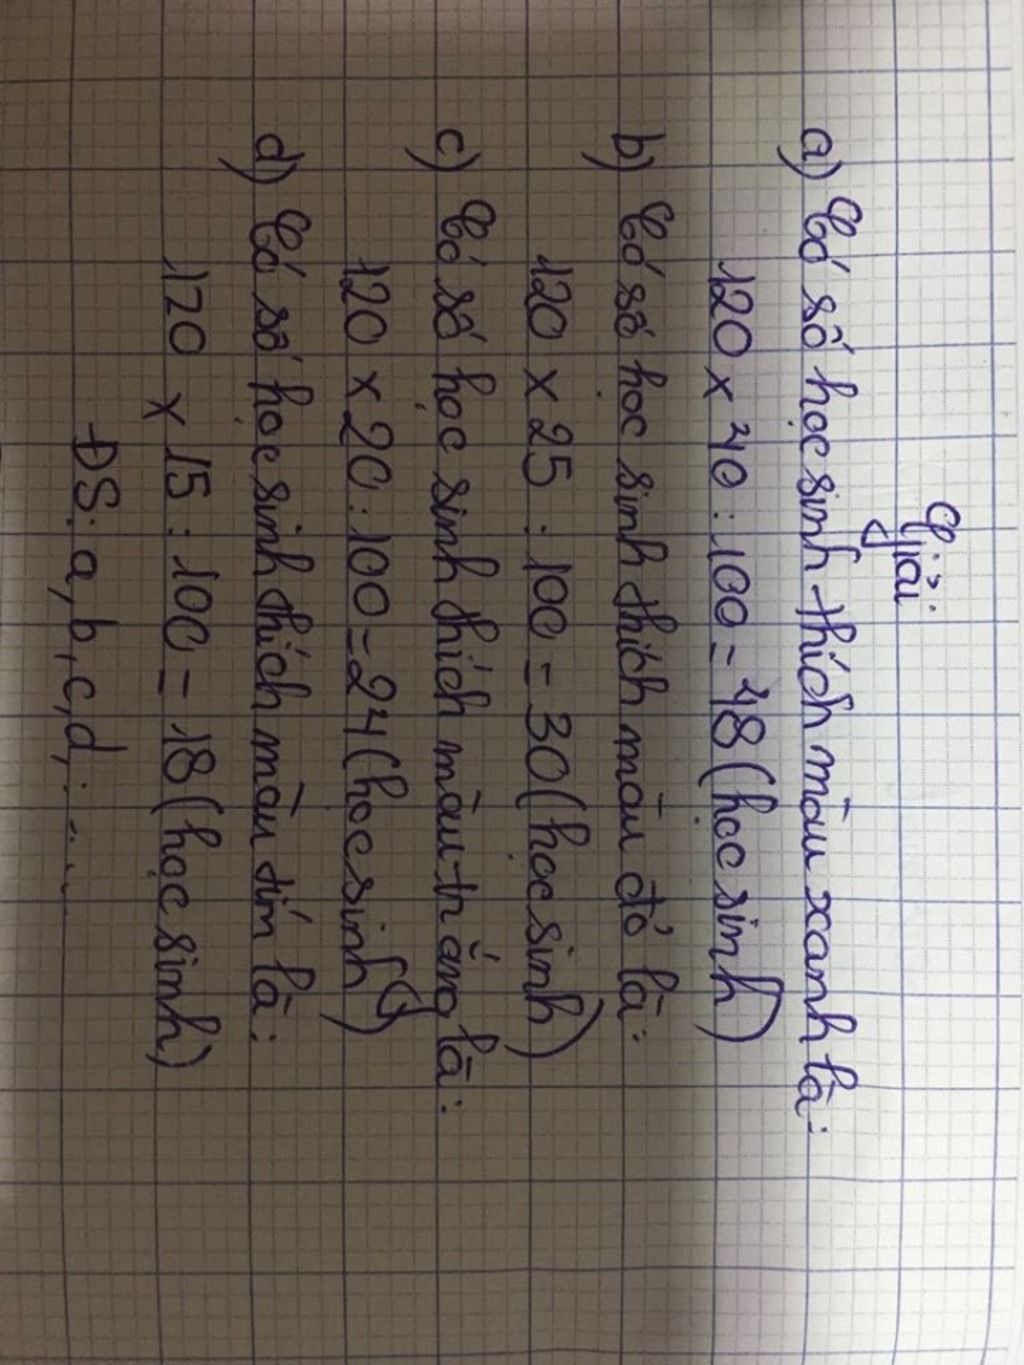 Giải
a) Có số học sinh thích màu xanh là:
120 x 40 : 100 = 48 (học sinh)
b) Có số học sinh thích màu đỏ là:
120 x 25 : 100 = 30 (học sinh)
c) Có số học sinh thích màu trắng là:
120 x 20 : 100 = 24 (học sinh)
d) Có số học sinh thích màu tím là:
120 x 15 : 100 = 18 (học sinh)
ĐS: a, b, c, d, : ....